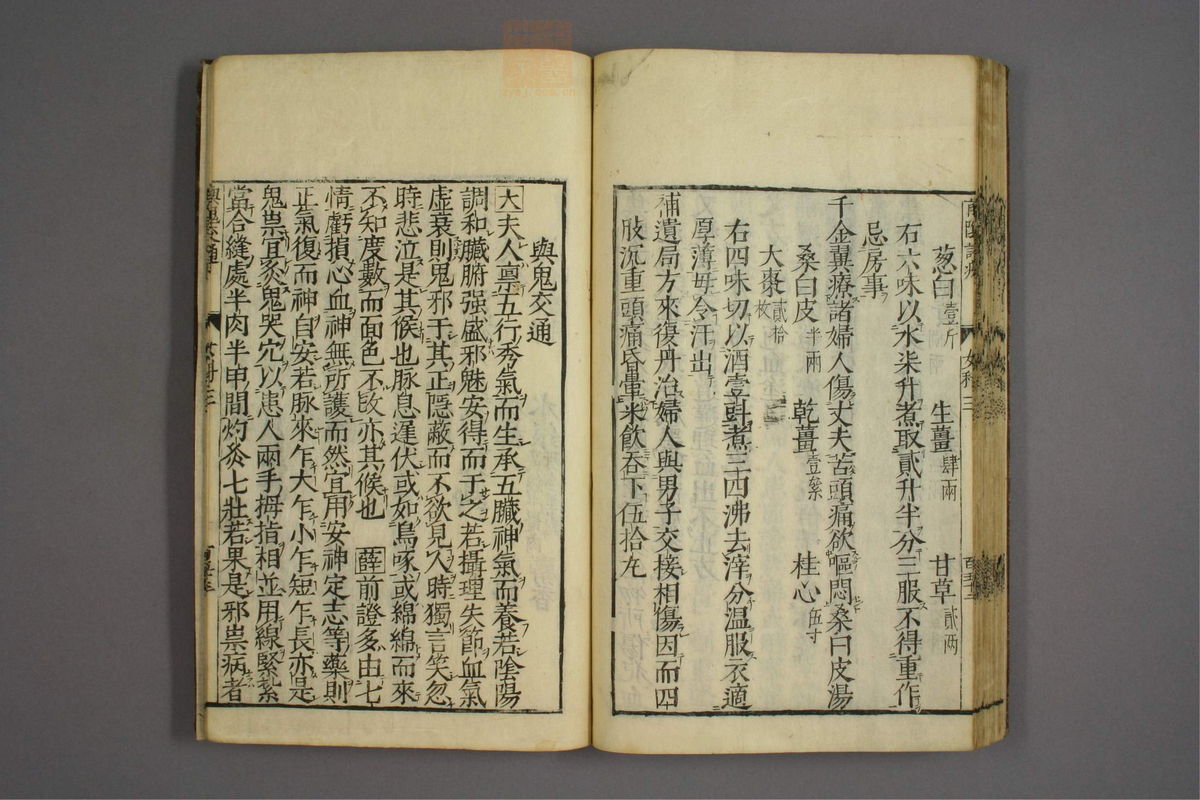 葱白壹斤　生薑肆兩　甘草貳兩
右六味以水柒升煮取貳升半分三服不得重作
忌房事
千金翼療諸婦人傷丈夫苦頭痛欲嘔悶桑白皮湯
桑白皮半兩　乾薑壹絫　桂心伍寸
大棗貳拾枚
右四味切以酒壹㪷煮三四沸去滓分温服衣適
厚薄毋令汗出
補遺局方來復丹治婦人與男子交接相傷因而四
肢沉重頭痛昏暈米飲吞下伍拾丸
女科三
與鬼交通
大夫人禀五行秀氣而生承五臟神氣而養若陰陽
調和臟腑强盛邪魅安得而干之若攝理失節血氣
虛衰則鬼邪干其正隱蔽而不欲見人時獨言笑忽
時悲泣是其候也脉息遲伏或如鳥啄或綿綿而來
不知度數而面色不改亦其候也　薛前證多由七
情虧損心血神無所護而然宜用安神定志等藥則
正氣復而神自安若脉來乍大乍小乍短乍長亦是
鬼祟宜灸鬼哭穴以患人兩手拇指相並用線緊紮
當合縫處半肉半甲間灼灸七壯若果是邪祟病者